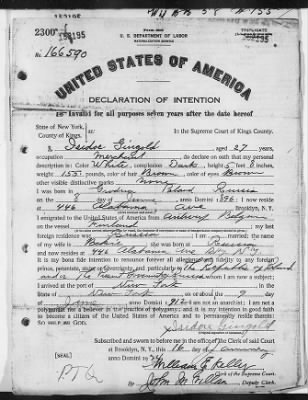 2300
158195
Form 2202
U. S. DEPARTMENT OF LABOR
NATURALIZATION SERVICE
No. 166590
UNITED STATES OF AMERICA
DECLARATION OF INTENTION
Invalid for all purposes seven years after the date hereof
State of New York,
County of Kings.
In the Supreme Court of Kings County.
I, Isidore Gingold, aged 27 years,
occupation Merchant, do declare on oath that my personal
description is: Color White, complexion Dark, height 5 feet 6 inches,
weight 155 pounds, color of hair Brown, color of eyes Brown
other visible distinctive marks None
I was born in Grodno Poland Russia
on the day of anno Domini 1896; I now reside at
446 Alabama Ave, Brooklyn, N. Y.
I emigrated to the United States of America from Antwerp Belgium
on the vessel Finland; my last
foreign residence was Russia; I am married; the name
of my wife is; she was born in Russia
and now resides at 446 Alabama Ave Bklyn N.Y.
It is my bona fide intention to renounce forever all allegiance and fidelity to any foreign
prince, potentate, state, or sovereignty, and particularly to The Republic of Poland
and/or The Present Government of Russia of whom I am now a subject;
I arrived at the port of New York, in the
State of New York, on or about the 9 day
of June, anno Domini 1912; I am not an anarchist; I am not a
polygamist nor a believer in the practice of polygamy; and it is my intention in good faith
to become a citizen of the United States of America and to permanently reside therein:
SO HELP ME GOD.
Isidore Gingold
(Original signature of declarant)
Subscribed and sworn to before me in the office of the Clerk of said Court
at Brooklyn, N. Y., this day of January
anno Domini
[SEAL]
William E. Kelly
Clerk of the Supreme Court.
By John M. Deputy Clerk.